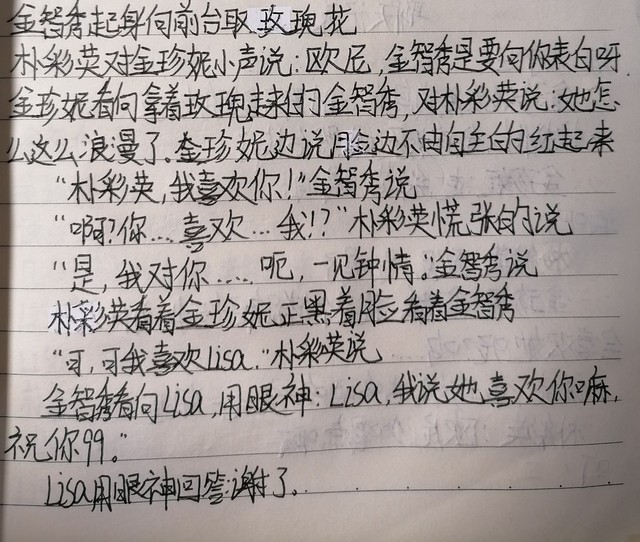 金智秀起身向前台取玫瑰花
朴彩英对金珍妮小声说:欧尼,金智秀是要向你表白呀
金珍妮看向拿着玫瑰走来的金智秀,对朴彩英说:她怎
么这么浪漫了。金珍妮边说脸边不由自主的红起来
“朴彩英,我喜欢你!”金智秀说
“啊?你...喜欢...我!?”朴彩英慌张的说
“是,我对你.....呃,一见钟情。”金智秀说
朴彩英看着金珍妮正黑着脸看着金智秀
“可,可我喜欢Lisa.”朴彩英说
金智秀看向Lisa,用眼神:Lisa,我说她喜欢你嘛,
祝你99。”
Lisa用眼神回答:谢了。